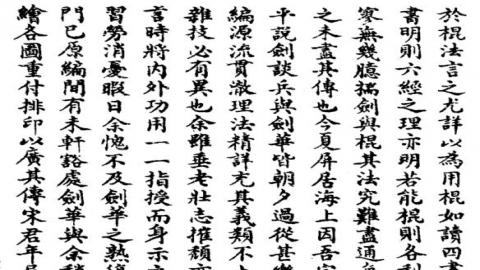 於棍法言之尤詳以為用棍如讀四書
書明則六經之理亦明若能棍則各利
寥無幾臆揣劍與棍其法究難盡通
之未盡其傳也今夏屏居海上因吾宗
平説劍談兵與劍華皆朝夕過從甚
編源流貫澈理法精詳尤其義類不
雜技必有異也余雖垂老壯志摧頹
言時將内外功用一一指授而身示
習勞消憂暇日余愧不及劍華之熟
門已原編間有未軒豁處劍華與余稍
繪各圖重付排印以廣其傳宋君年